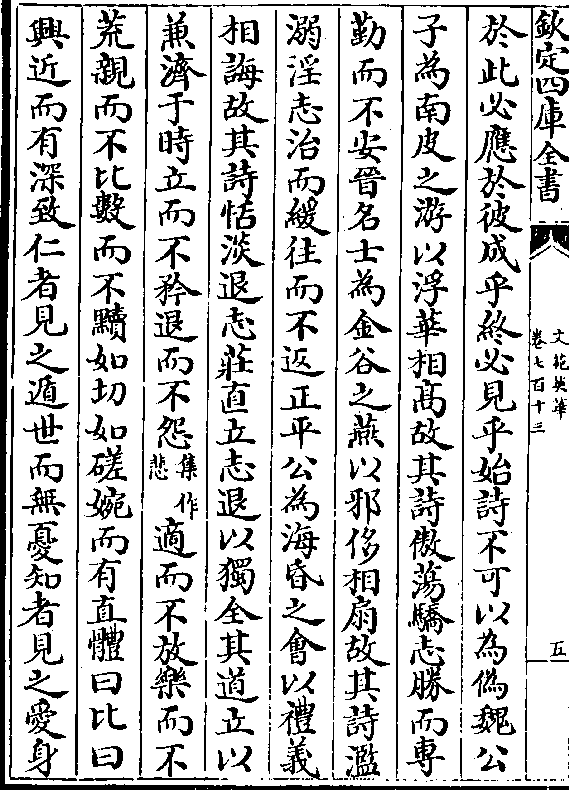 欽定四庫全書
文苑英華
卷七百十三
五
於此必應於彼成乎終必見乎始詩不可以為偽魏公
子為南皮之游以浮華相髙故其詩傲蕩驕志勝而専
勤而不安晉名士為金谷之燕以邪侈相扇故其詩濫
溺淫志治而緩往而不返正平公為海昏之會以禮義
相誨故其詩恬淡退志莊直立志退以獨全其道立以
兼濟于時立而不矜退而不怨集作悲適而不放樂而不
荒親而不比數而不黷如切如磋婉而有直體曰比曰
興近而有深致仁者見之遁世而無憂知者見之愛身